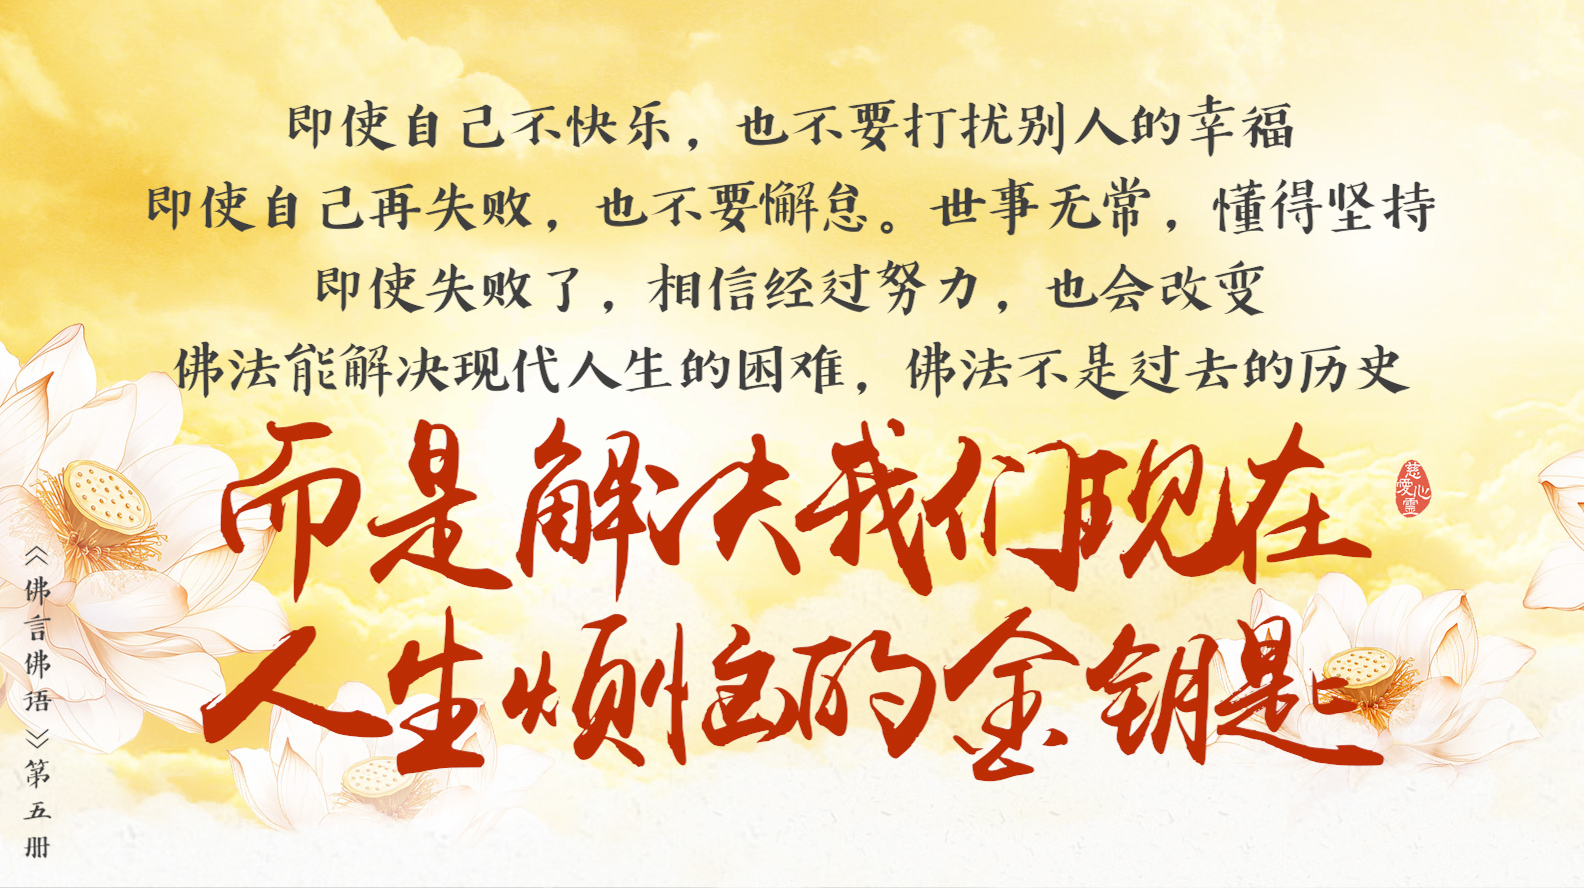 即使自己不快乐，也不要打扰别人的幸福
即使自己再失败，也不要懈怠。世事无常，懂得坚持
即使失败了，相信经过努力，也会改变
佛法能解决现代人生的困难，佛法不是过去的历史
而是解决我们现在
人生烦恼的金钥匙
慈心
愛靈
《佛言佛语》第五册